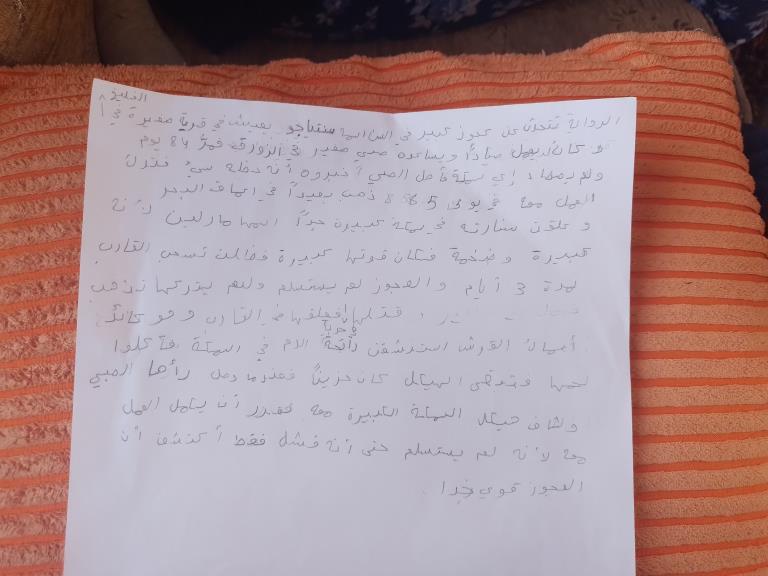 الخليج
الرواية تتحدث عن عجوز كبير في السن اسمه سنتياجو يعيش في قرية صغيرة في
هو كان يعمل صياداً ويساعده صبي صغير في الزورق فمرَّ 84 يوم
ولم يصطاد إي سمكة فأهل الصبي أخبروه أنه حظه سيء فترك
العمل معه في يوم 85 ذهب بعيداً في اعماق البحر
و علقت سنارته في سمكة كبيرة جداً اسمها مارلين لأنه
كبيرة وضخمة فكان قوتها كبيرة فظلت تسحب القارب
لمدة 3 أيام والعجوز لم يستسلم ولم يتركها تذهب
قتلها علقها في القارب وهو عائد
بحربة
أسماك القرش استنشقت رائحة الدم في السمكة فأكلوا
لحمها فتبقى الهيكل كان حزيناً فعندما وصل رأها الصبي
وشاف هيكل السمكة الكبيرة معه فقرر أن يكمل العمل
معه لأنه لم يستسلم حتى أنه فشل فقط أكتشف أن
العجوز قوي جدا .